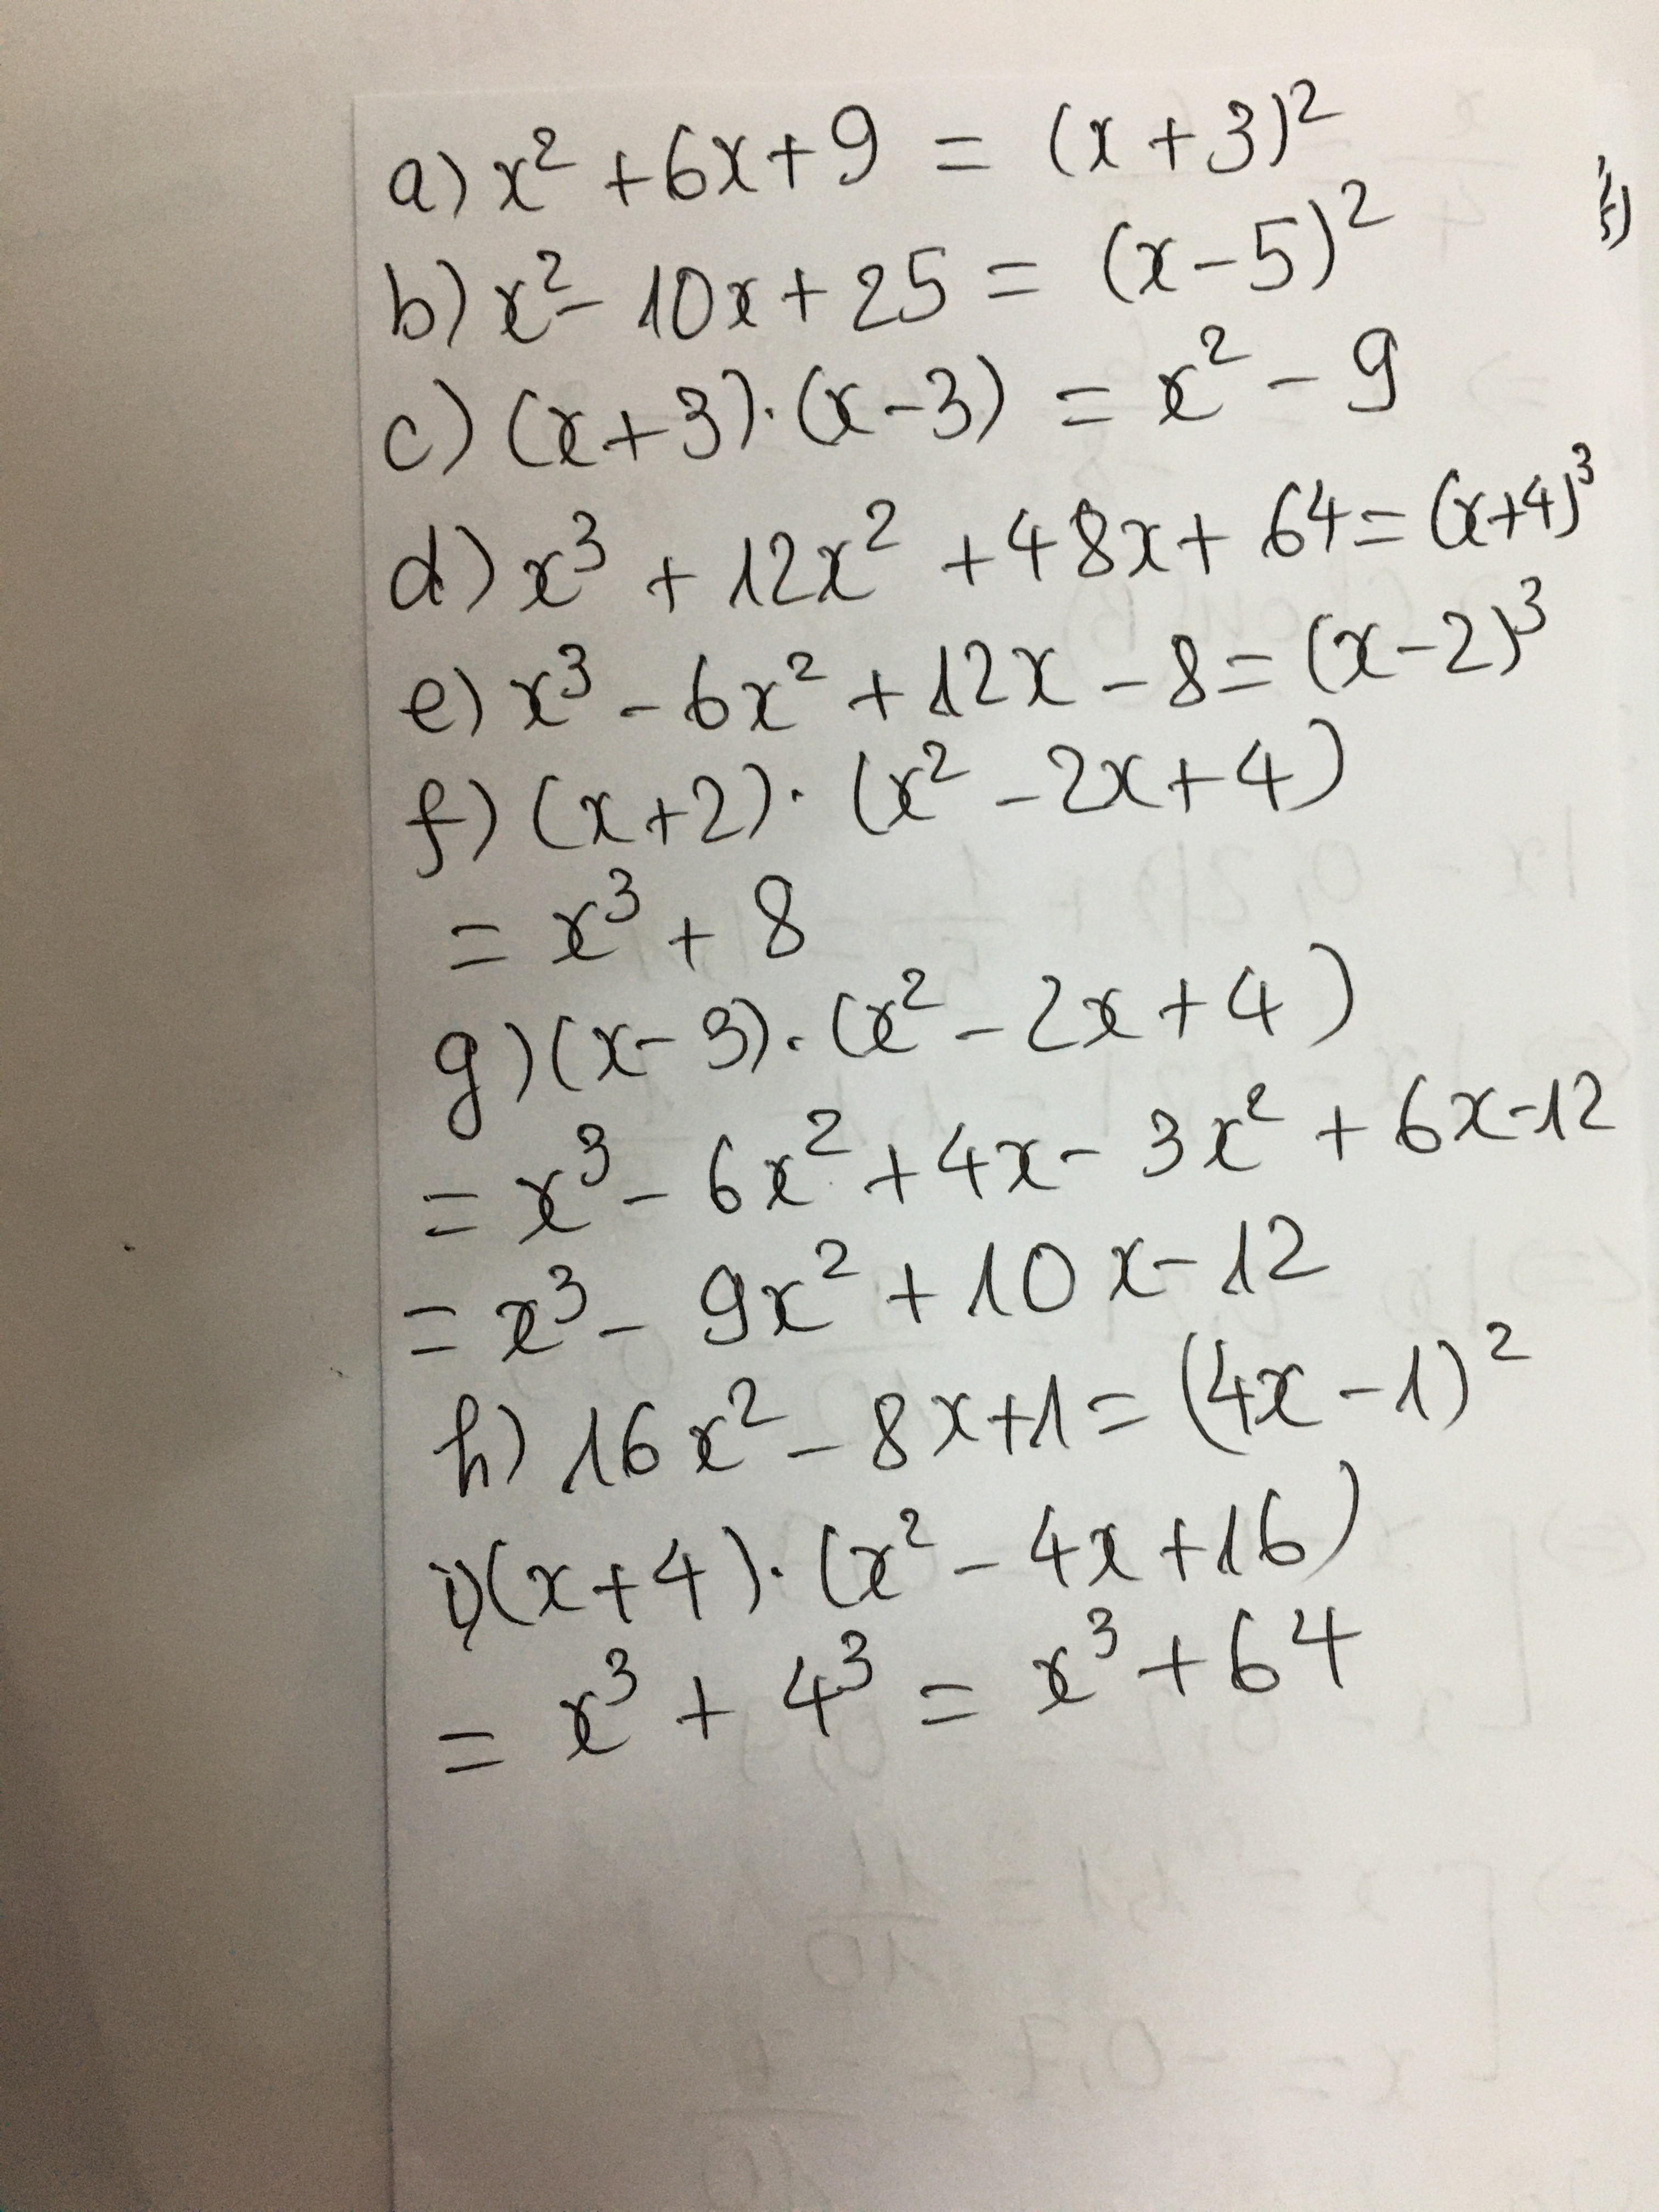 a) x² + 6x + 9 = (x + 3)²
b) x² - 10x + 25 = (x - 5)²
c) (x + 3) . (x - 3) = x² - 9
d) x³ + 12x² + 48x + 64 = (x + 4)³
e) x³ - 6x² + 12x - 8 = (x - 2)³
f) (x + 2) . (x² - 2x + 4)
= x³ + 8
g) (x - 3) . (x² - 2x + 4)
= x³ - 6x² + 4x - 3x² + 6x - 12
= x³ - 9x² + 10x - 12
h) 16x² - 8x + 1 = (4x - 1)²
i) (x + 4) . (x² - 4x + 16)
= x³ + 4³ = x³ + 64